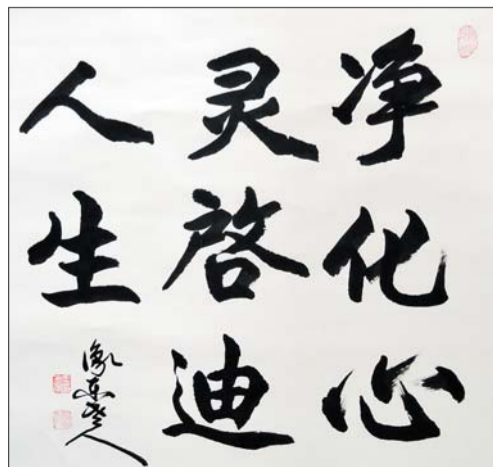 净化心
灵啓迪
人生